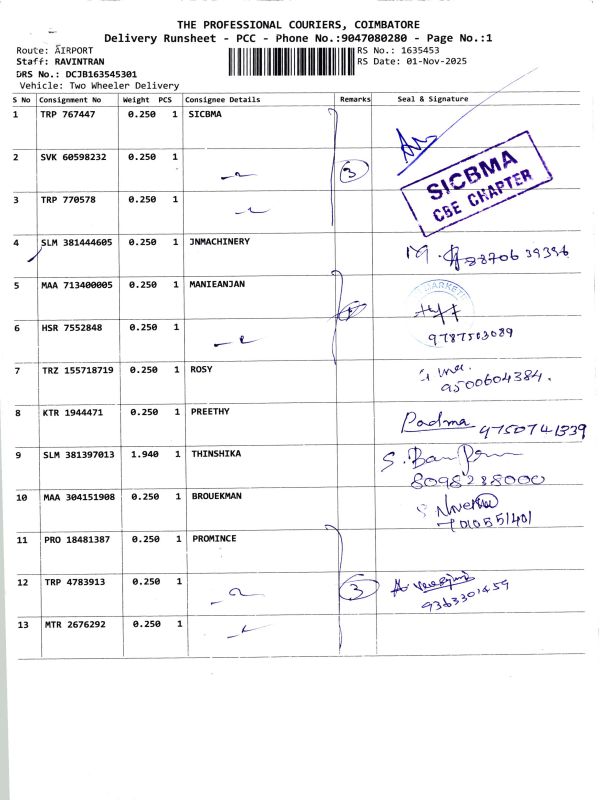 THE PROFESSIONAL COURIERS, COIMBATORE
Delivery Runsheet - PCC - Phone No.:9047080280 - Page No.:1
Route: AIRPORT
Staff: RAVINTRAN
DRS No.: DCJB163545301
Vehicle: Two Wheeler Delivery
RS No.: 1635453
RS Date: 01-Nov-2025
S No Consignment No Weight PCS Consignee Details Remarks Seal & Signature
1 TRP 767447 0.250 1 SICBMA
2 SVK 60598232 0.250 1 3
SICBMA
CBE CHAPTER
3 TRP 770578 0.250 1
4 SLM 381444605 0.250 1 JNMACHINERY 8870639396
5 MAA 713400005 0.250 1 MANIEANJAN
6 HSR 7552848 0.250 1 9787503089
7 TRZ 155718719 0.250 1 ROSY
9500604384.
8 KTR 1944471 0.250 1 PREETHY Padma 9750741339
9 SLM 381397013 1.940 1 THINSHIKA
8098238000
10 MAA 304151908 0.250 1 BROUEKMAN
7010551401
11 PRO 18481387 0.250 1 PROMINCE
12 TRP 4783913 0.250 1 3
9363301459
13 MTR 2676292 0.250 1